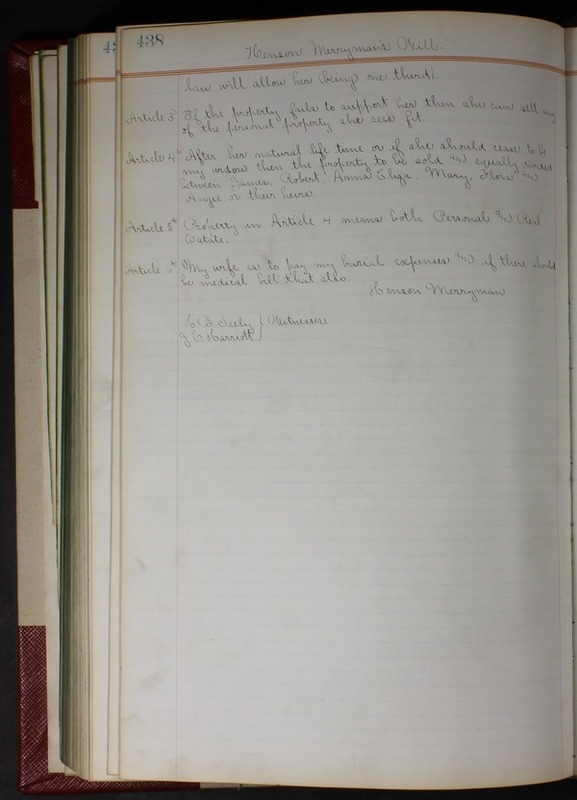 438
Henson Merryman's Will.
law will allow her (being one third).
Article 3d If the property fails to support her then she can sell any
of the personal property she sees fit.
Article 4th After her natural life time or if she should cease to be
my widow then the property to be sold and equally divided
between James, Robert, Anna Eliza, Mary, Flora and
Angie or their heirs
Article 5th Property in Article 4 means both Personal and Real
Estate.
Article 6th My wife is to pay my burial expenses and if there should
be medical bill that also.
Henson Merryman
Seely } Witnesses
J C Harriott